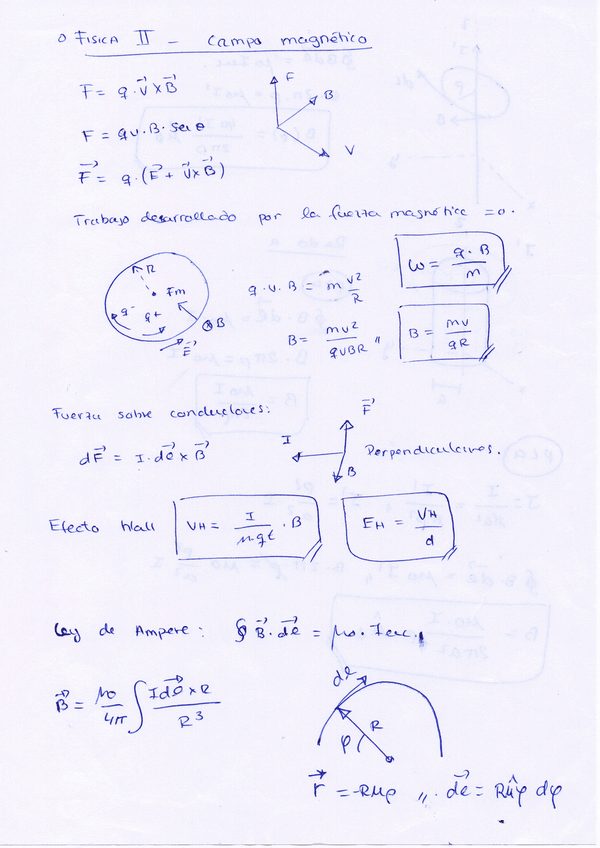 o FISICA II - Campo magnético
F = q · v⃗ x B⃗
F
B
V
F = qv · B · sen θ
F⃗ = q · (E⃗ + v⃗ x B⃗)
Trabajo desarrollado por la fuerza magnética = 0.
R
Fm
q-
q+
⊗ B
E⃗
q · v · B = m v²/R
ω = q · B / m
B = mv² / qvBR ,,
B = mv / qR
Fuerza sobre conductores:
dF⃗ = I · dℓ⃗ x B⃗
F⃗
I
B
Perpendiculares.
Efecto Hall
VH = I / n·qt · B
EH = VH / d
Ley de Ampere: ∮ B⃗ · dℓ⃗ = μo · Ienc.
B⃗ = μo / 4π ∫ I dℓ⃗ x R / R³
dℓ
R
φ
r⃗ = -Rμρ ,, dℓ⃗ = Rûφ dφ